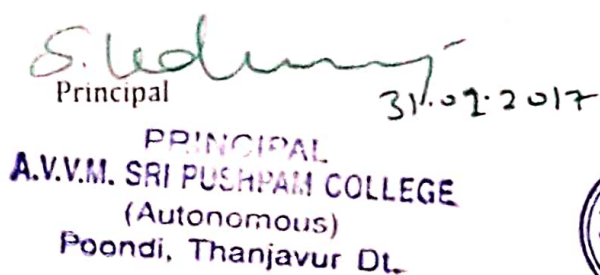 Principal
31.07.2017
PRINCIPAL
A.V.V.M. SRI PUSHPAM COLLEGE
(Autonomous)
Poondi, Thanjavur Dt.